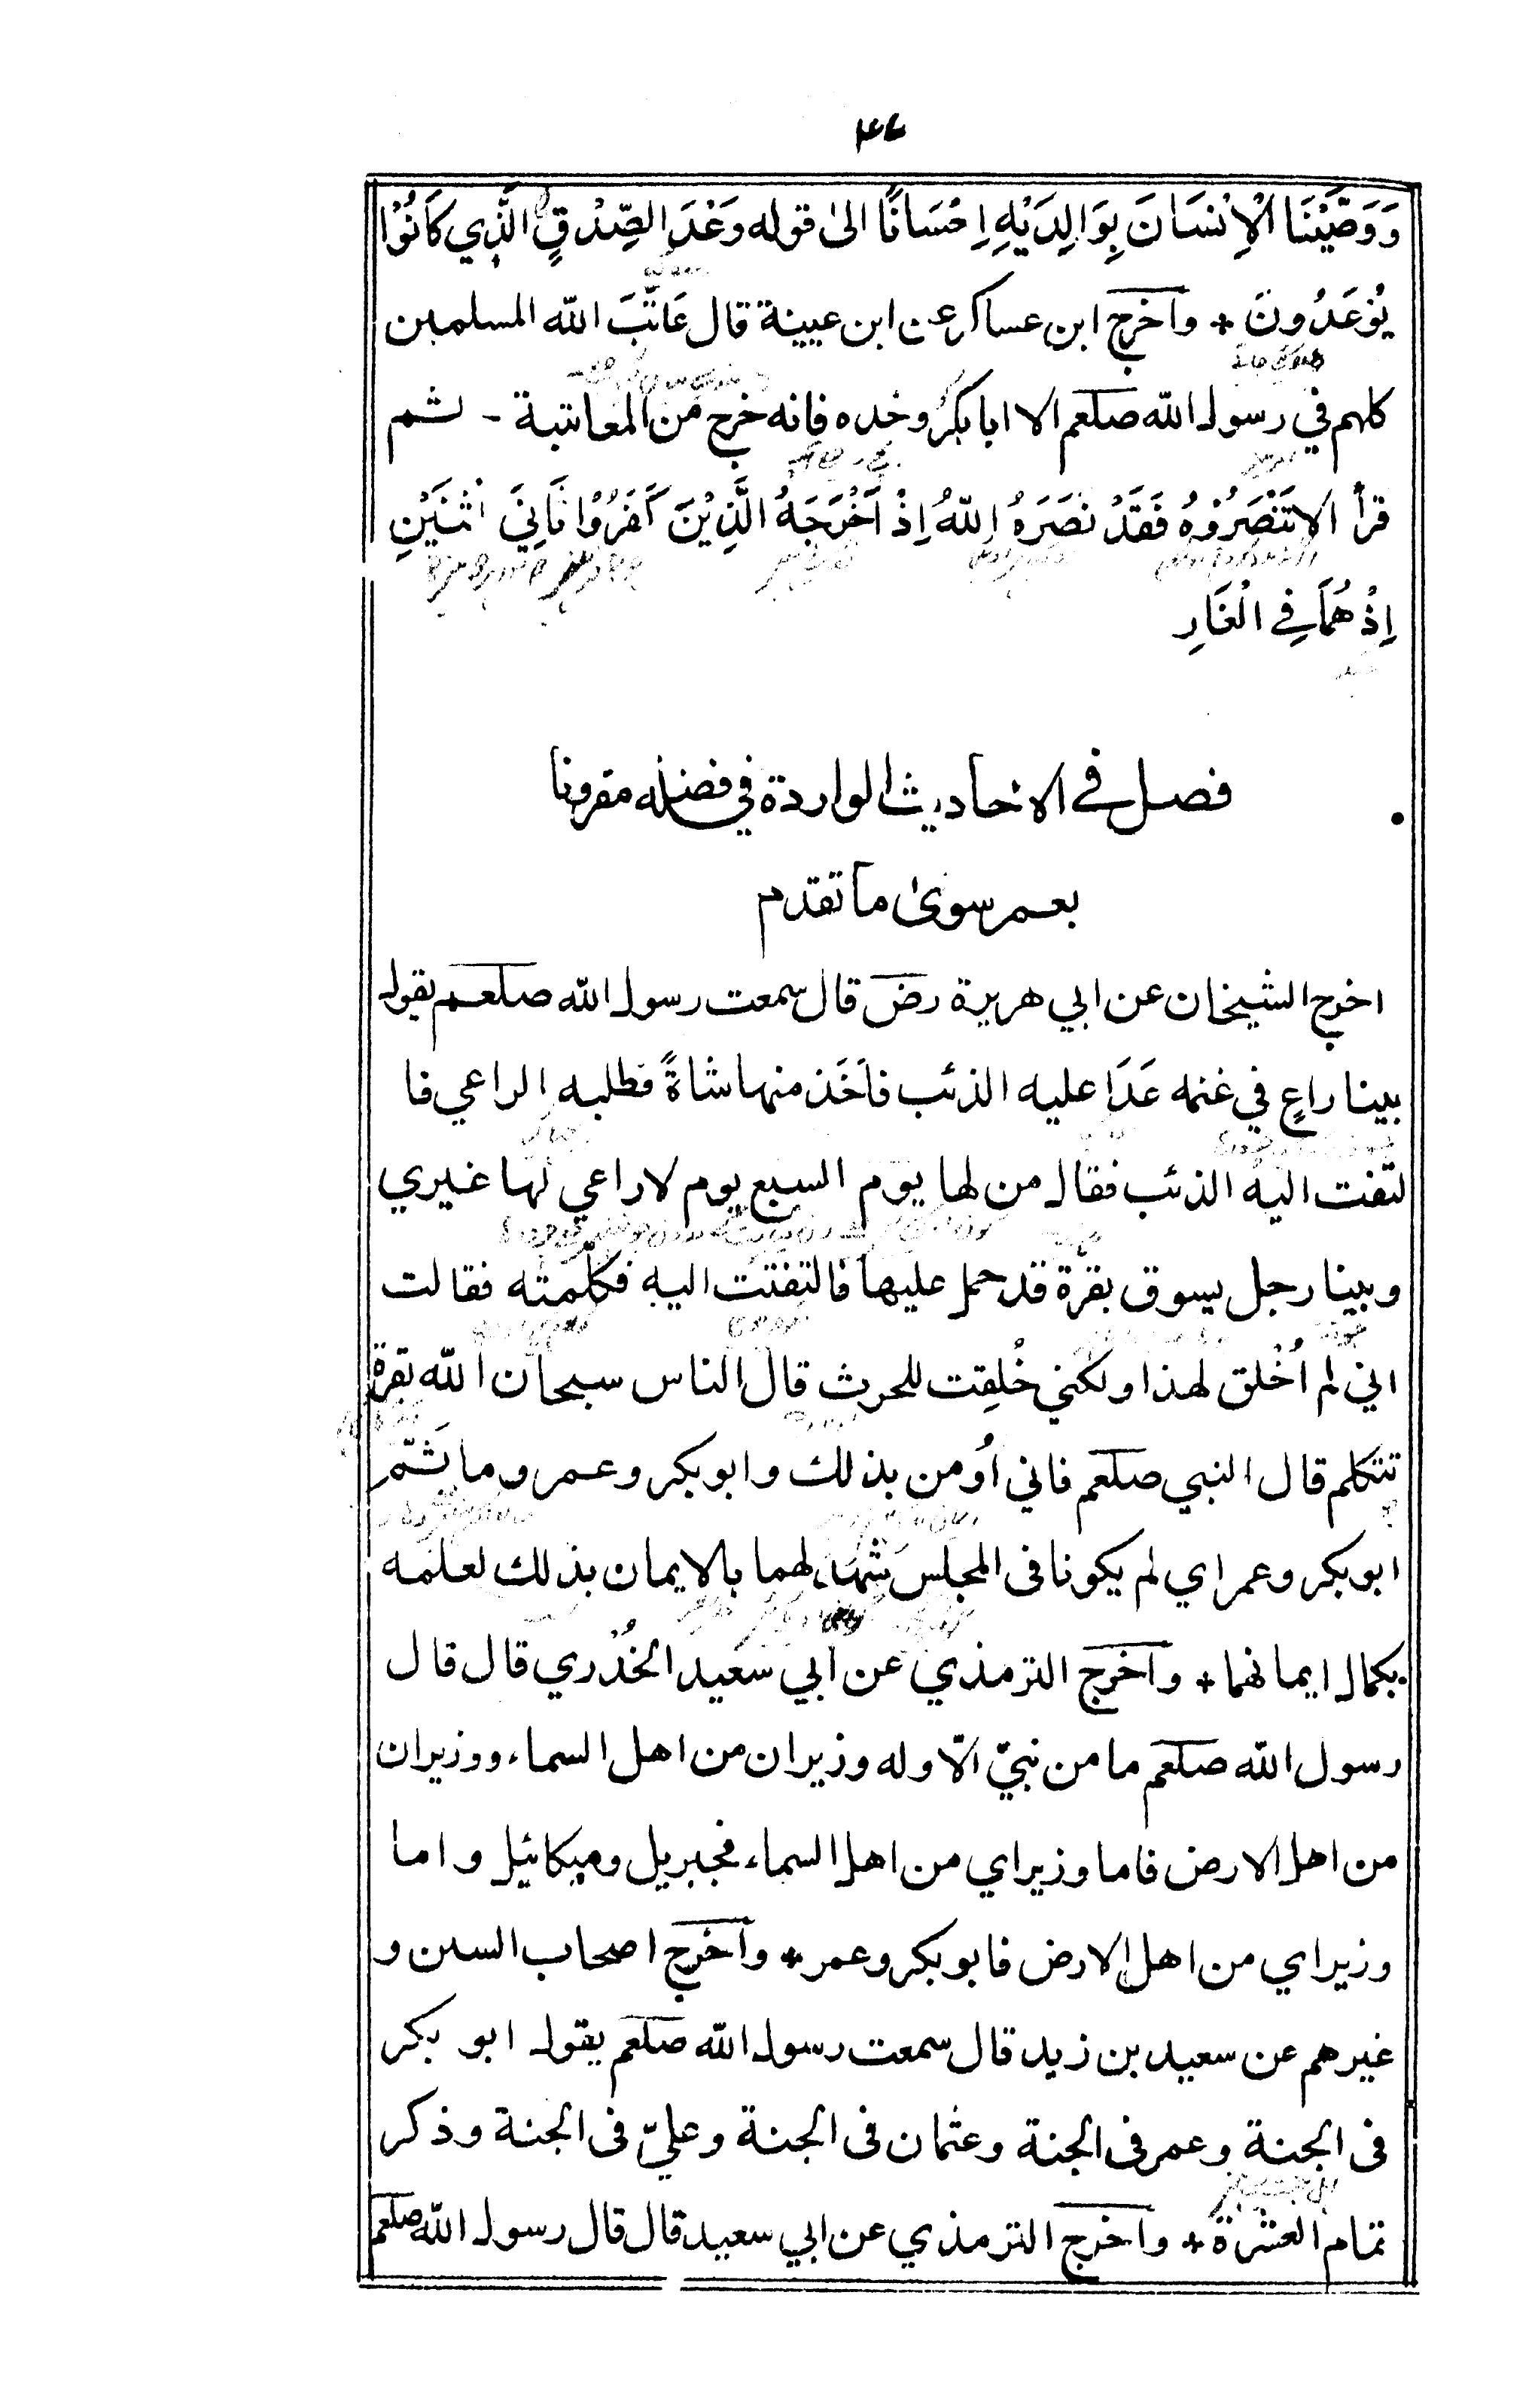 ٤٦
وَوَصَّيْنَا الْاِنْسَانَ بِوَالِدَيْهِ اِحْسَانًا الىٰ قوله وَعْدَ الصِّدْقِ الَّذِي كَانُوْا
يُوْعَدُونَ * واخرج ابن عساكر عن ابن عيينة قال عَاتَبَ الله المسلمين
كلهم في رسول الله صلعم الا ابا بكر وحده فانه خرج من المعاتبة - ثم
قرأ الا تَنْصُرُوْهُ فَقَدْ نَصَرَهُ اللهُ اِذْ اَخْرَجَهُ الَّذِيْنَ كَفَرُوْا ثَانِيَ اثْنَيْنِ
اِذْ هُمَا فِي الْغَارِ
فصل في الاحاديث الواردة في فضله مقرونا
بعمر سوىٰ ما تقدم
اخرج الشيخان عن ابي هريرة رض قال سمعت رسول الله صلعم يقول
بينا راعٍ في غنمه عَدَا عليه الذئب فاَخَذ منها شاةً فطلبه الراعي فا
لتفت اليه الذئب فقال من لها يوم السبع يوم لا راعي لها غيري
وبينا رجل يسوق بقرة قد حمل عليها فالتفتت اليه فكلّمته فقالت
اني لم اُخْلق لهذا ولكني خُلِقت للحرث قال الناس سبحان الله بقرة
تتكلم قال النبي صلعم فاني اُومن بذلك وابو بكر وعمر وما ثَمّ
ابو بكر وعمر اي لم يكونا في المجلس شَهِدَ لهما بالايمان بذلك لعلمه
بكمال ايمانهما * واخرج الترمذي عن ابي سعيد الخُدْري قال قال
رسول الله صلعم ما من نبيّ الّا وله وزيران من اهل السماء ووزيران
من اهل الارض فاما وزيراي من اهل السماء فجبريل وميكائيل واما
وزيراي من اهل الارض فابو بكر وعمر * واخرج اصحاب السنن و
غيرهم عن سعيد بن زيد قال سمعت رسول الله صلعم يقول ابو بكر
في الجنة وعمر في الجنة وعثمان في الجنة وعليّ في الجنة وذكر
تمام العشرة * واخرج الترمذي عن ابي سعيد قال قال رسول الله صلعم